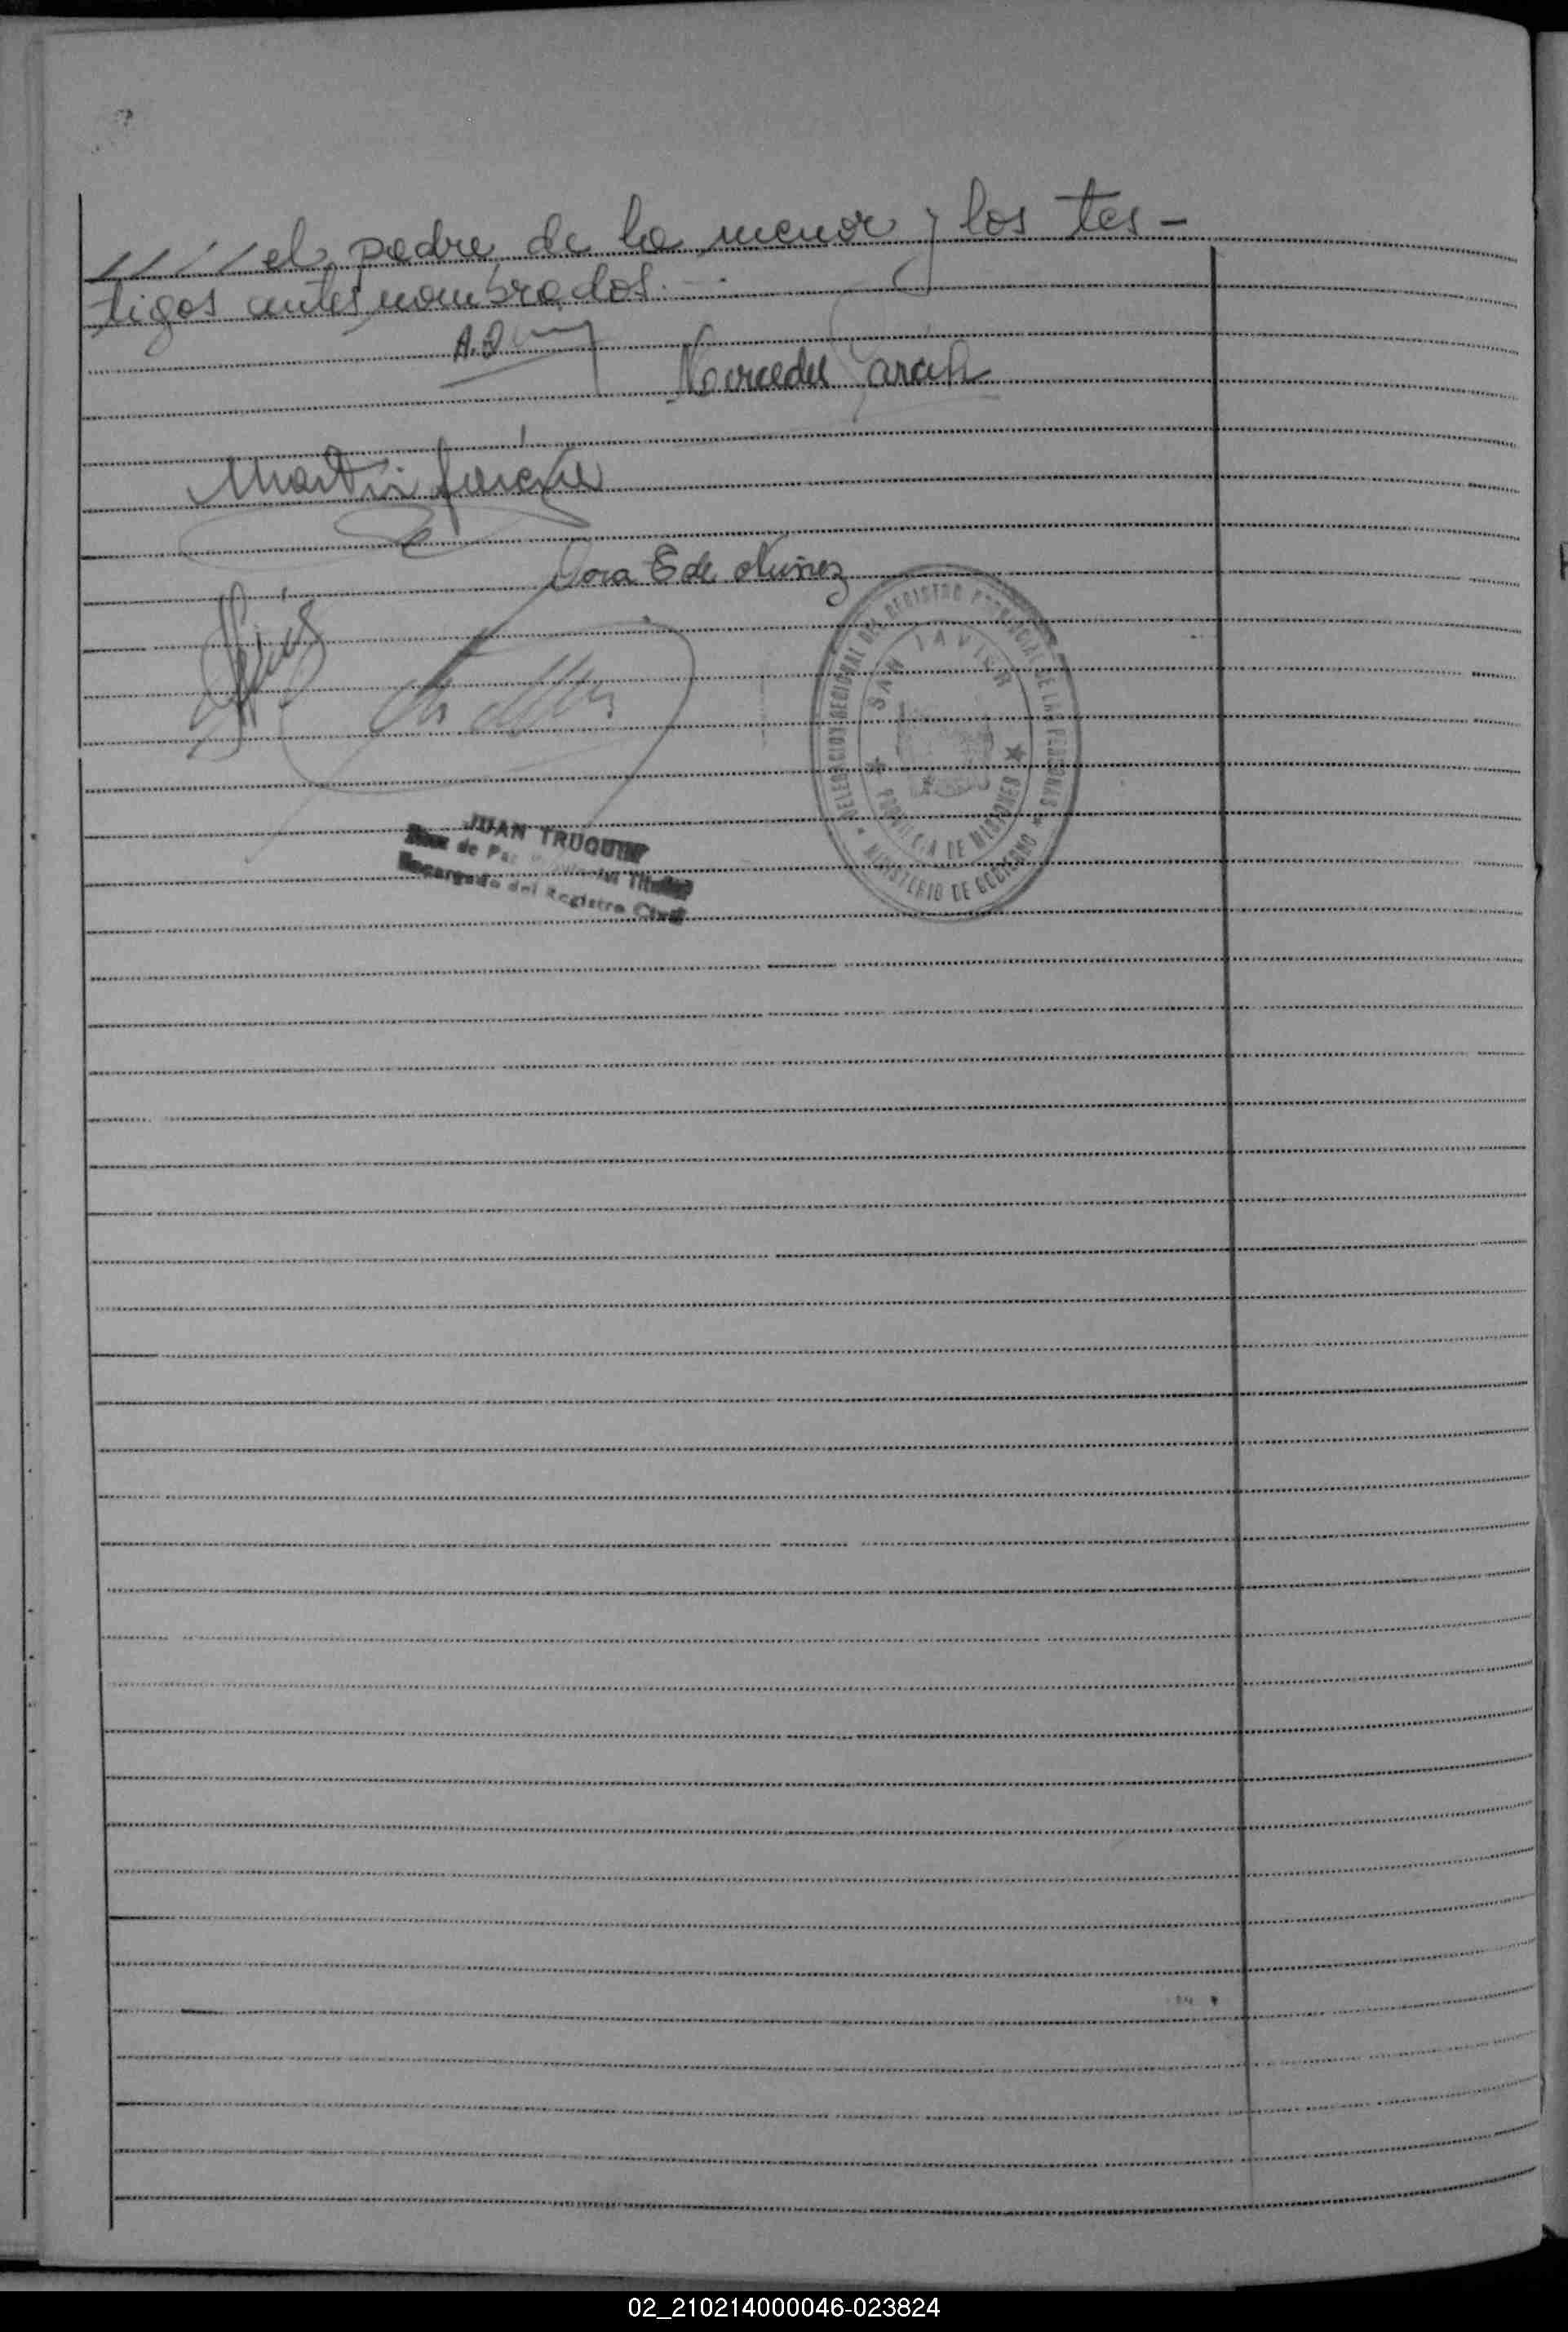 //// el padre de la menor y los tes-
tigos antes nombrados.-
A.D
Martin
Dora E de Nuñez
DELEGACION REGIONAL DEL REGISTRO PROVINCIAL DE LAS PERSONAS
SAN JAVIER
PROVINCIA DE MISIONES
MINISTERIO DE GOBIERNO
JUAN TRUQUIN
Juez de Paz Titular
Encargado del Registro Civil
02_210214000046-023824